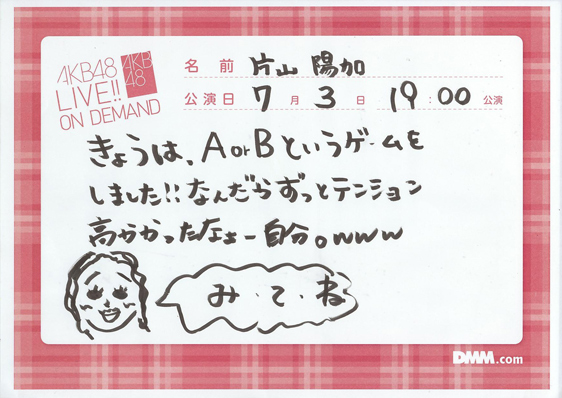 AKB48
LIVE!!
ON DEMAND
AKB
48
名前 片山 陽加
公演日 7月3日 19:00公演
きょうは、AorBというゲームを
しました!!なんだらずっとテンション
高かかったなぁー自分。www
み・て・ね
DMM.com